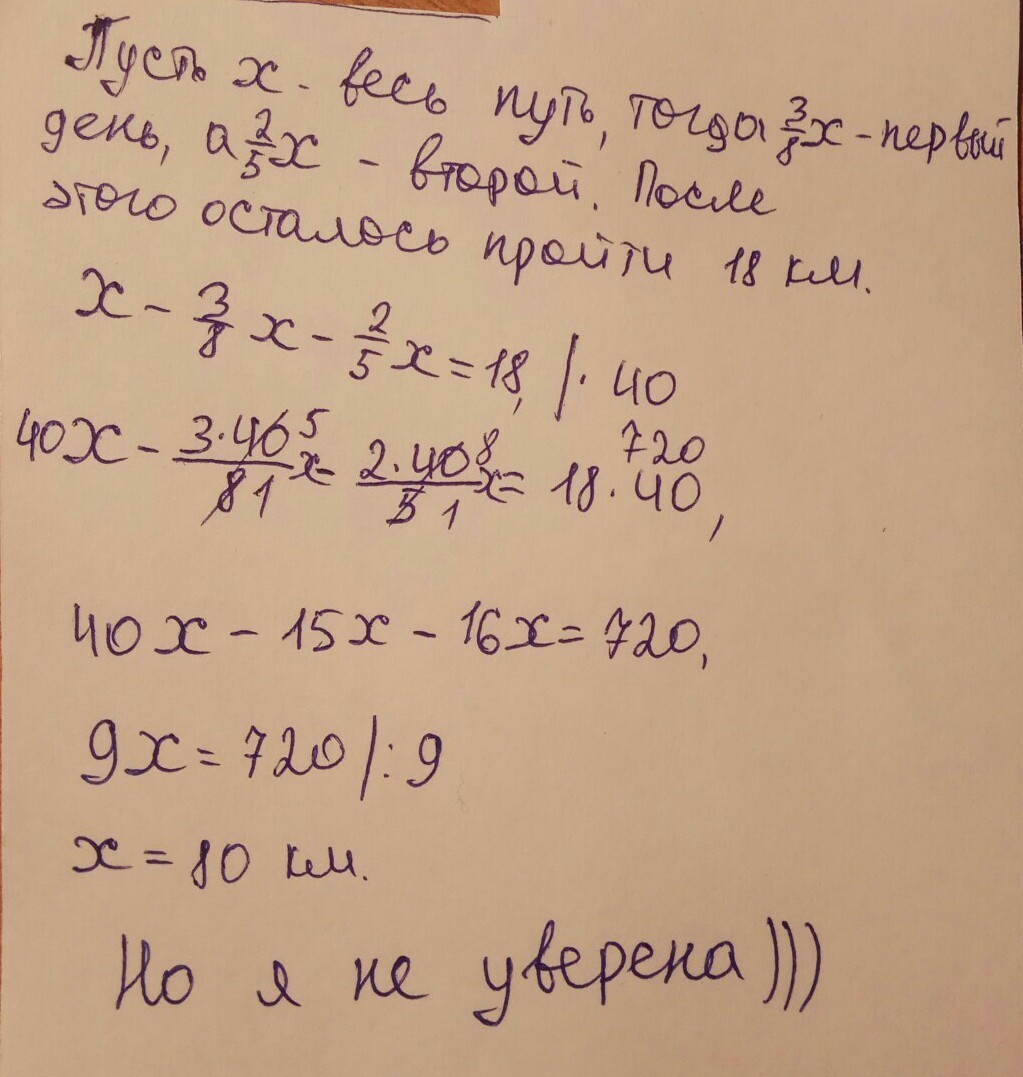 Пусть x - весь путь, тогда 3/8 x - первый
день, а 2/5 x - второй. После
этого осталось пройти 18 км.
x - 3/8 x - 2/5 x = 18, | · 40
40x - 3·40 5/8 1 x - 2·40 8/5 1 x = 18 · 40 720,
40x - 15x - 16x = 720,
9x = 720 | : 9
x = 80 км.
Но я не уверена)))